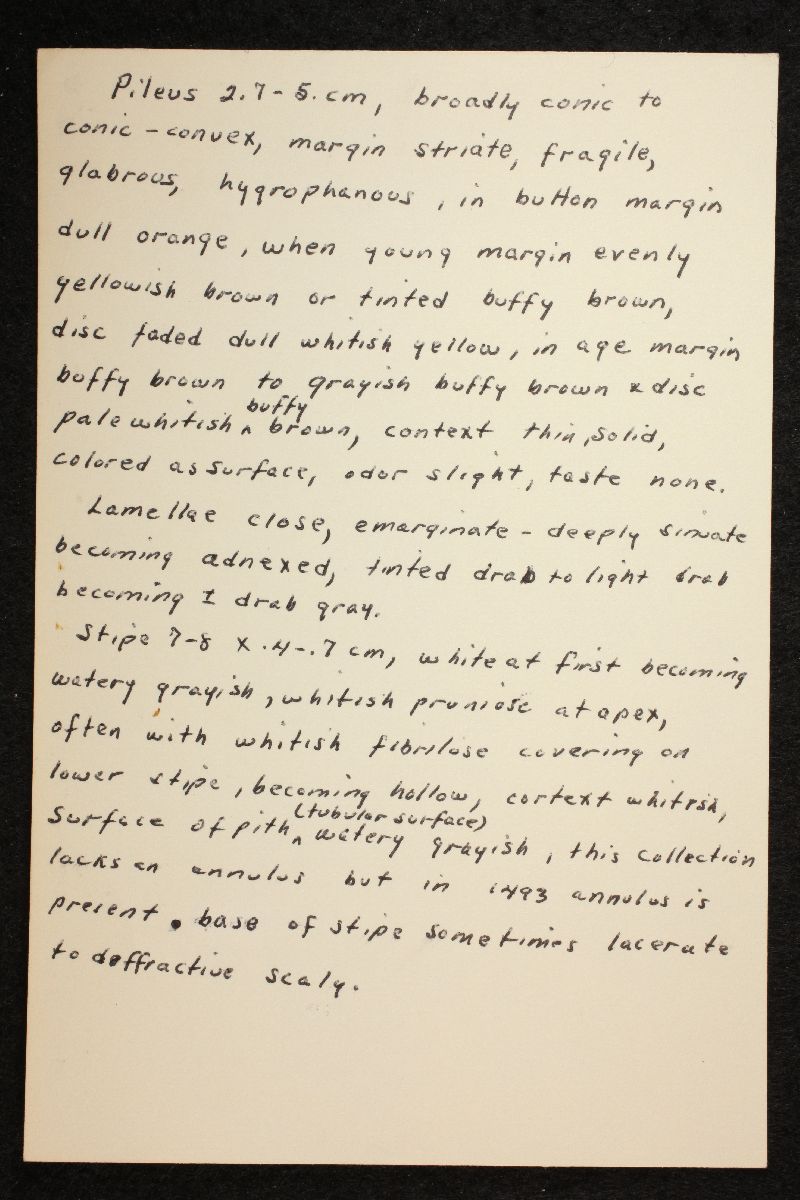 Pileus 2.7-5. cm, broadly conic to
conic-convex, margin striate, fragile,
glabrous, hygrophanous, in button margin
dull orange, when young margin evenly
yellowish brown or tinted buffy brown,
disc faded dull whitish yellow, in age margin
buffy brown to grayish buffy brown & disc
pale whitish ^ buffy brown, context thin, solid,
colored as surface, odor slight, taste none.
Lamellae close, emarginate - deeply sinuate
becoming adnexed, tinted drab to light drab
becoming I drab gray.
Stipe 7-8 x .4-.7 cm, white at first becoming
watery grayish, whitish pruniose at apex,
often with whitish fibrilose covering on
lower stipe, becoming hollow, cortext whitish,
surface of pith ^ (tubular surface) watery grayish, this collection
lacks an annulus but in 1493 annulus is
present. base of stipe sometimes lacerate
to deffractive scaly.